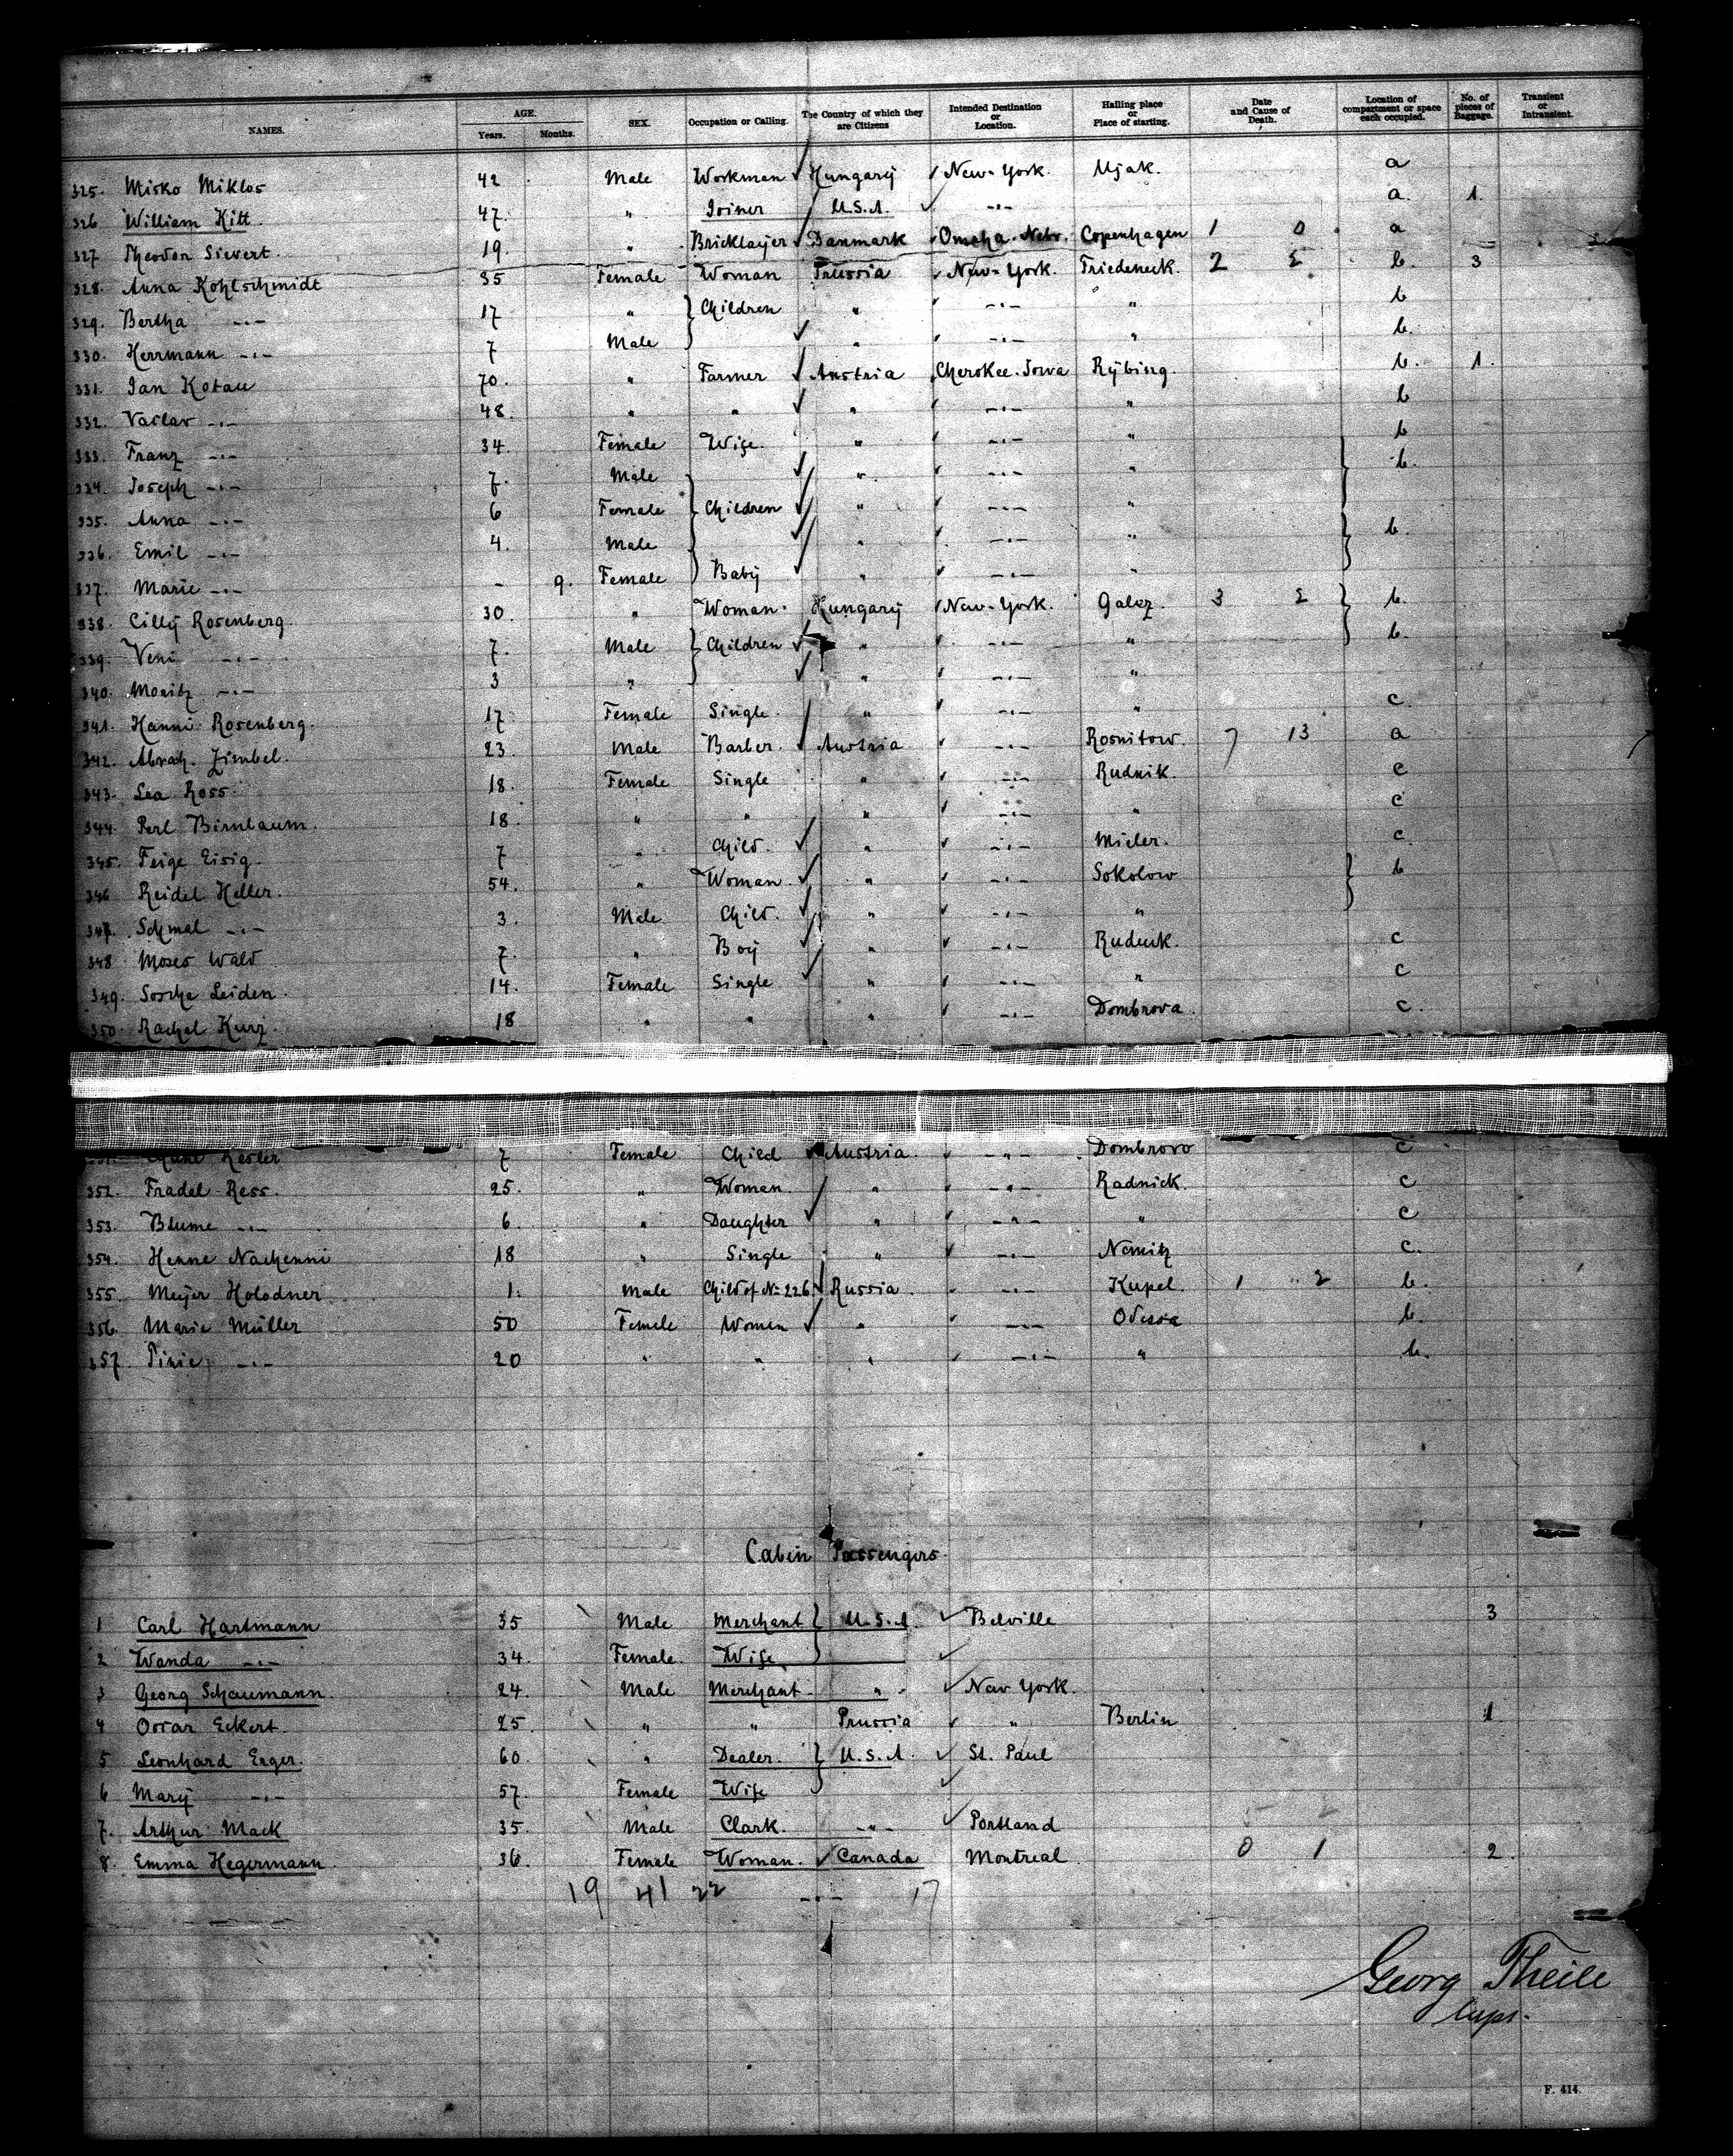 NAMES. AGE. Years. Months. SEX. Occupation or Calling. The Country of which they are Citizens Intended Destination or Location. Hailing place or Place of starting. Date and Cause of Death. Location of compartment or space each occupied. No. of pieces of Baggage. Transient or Intransient.
325. Misko Miklos 42 Male Workman Hungary New-York. Ujak. a
326 William Kitt. 47. " Joiner U.S.A. -"- a. 1.
327 Theodor Sievert. 19. " Bricklayer Danmark Omaha. Nebr. Copenhagen 1 0 a
328. Anna Kohlschmidt 35 Female Woman Prussia New-York. Friedeneck. 2 2 b. 3
329. Bertha -"- 17 " Children " -"- " b
330. Herrmann -"- 7 Male " -"- " b.
331. Jan Kotau 70. " Farmer Austria Cherokee. Iowa Rybing. b. 1.
332. Vaclav -"- 48. " " " -"- " b
333. Franz -"- 34. Female Wife. " -"- " b
334. Joseph -"- 7. Male " -"- " b.
335. Anna -"- 6 Female Children " -"- "
336. Emil -"- 4. Male " -"- " b.
337. Marie -"- - 9. Female Baby " -"- "
338. Cilly Rosenberg. 30. " Woman. Hungary New-York. Galez. 3 2 b.
339. Veni -"- 7. Male Children " -"- " b.
340. Moritz -"- 3 " " -"- "
341. Hanni Rosenberg. 17 Female Single. " -"- " c.
342. Abrah. Zimbel. 23. Male Barber. Austria -"- Rosnitow. 7 13 a
343. Lea Ross. 18. Female Single " -"- Rudnik. c
344. Perl Birnbaum. 18. " " " -"- " c
345. Feige Eisig. 7 " Child. " -"- Mieler. c.
346 Reidel Heller. 54. " Woman. " -"- Sokolow b
347. Schmal -"- 3. Male Child. " -"- "
348 Moses Wald 7. " Boy " -"- Ruduk. c
349. Sosche Leiden. 14. Female Single " -"- " c
350. Rachel Kurz. 18 " " " -"- Dombrova. c.
Kesler 7 Female Child Austria. -"- Dombrovo c
352. Fradel Ress. 25. " Woman. " -"- Radnick. c
353. Blume -"- 6. " Daughter " -"- " c
354. Henne Nachenni 18 " Single " -"- Nemitz c.
355. Meijer Holodner 1. Male Child of No 226. Russia. -"- Kupel. 1 2 b.
356. Marie Müller 50 Female Women " -"- Odessa b.
357. Pinie -"- 20 " " " -"- " b.
Cabin Passengers.
1 Carl Hartmann 35 Male Merchant U.S.A. Belville 3
2 Wanda -"- 34. Female. Wife
3 Georg Schaumann. 24. Male Merchant " New York.
4 Oscar Eckert. 25. " " Prussia " Berlin 1
5 Leonhard Enger. 60. " Dealer. U.S.A. St. Paul
6 Mary -"- 57. Female Wife
7. Arthur Mack 35. Male Clark. -"- Portland
8. Emma Hegermann. 36. Female Woman. Canada Montreal 0 1 2.
19 41 22 -"- 17
Georg Theile
Capt.
F. 414.